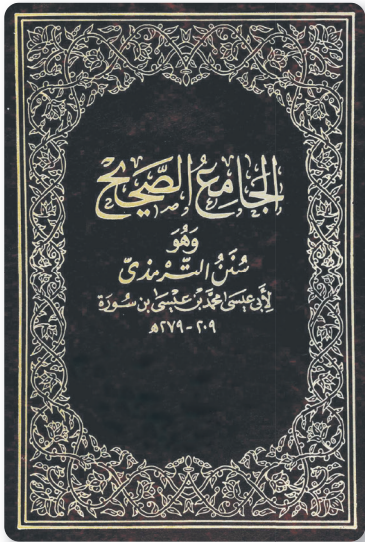 الجَامِعُ الصَّحِيحُ
وَهُوَ
سُنَنُ التِّرْمِذِىّ
لِأَبِى عِيسَى مُحَمَّد بْن عِيسَى بن سَوْرَة
٢٠٩-٢٧٩ﻫ